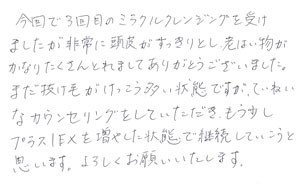 今回で3回目のミラクルクレンジングを受け
ましたが非常に頭皮がすっきりとし、老はい物が
かなりたくさんとれましてありがとうございました。
まだ抜け毛がけっこう多い状態ですが、ていねい
なカウンセリングをしていただき、もう少し
プラス1EXを増やした状態で継続していこうと
思います。よろしくお願いいたします。